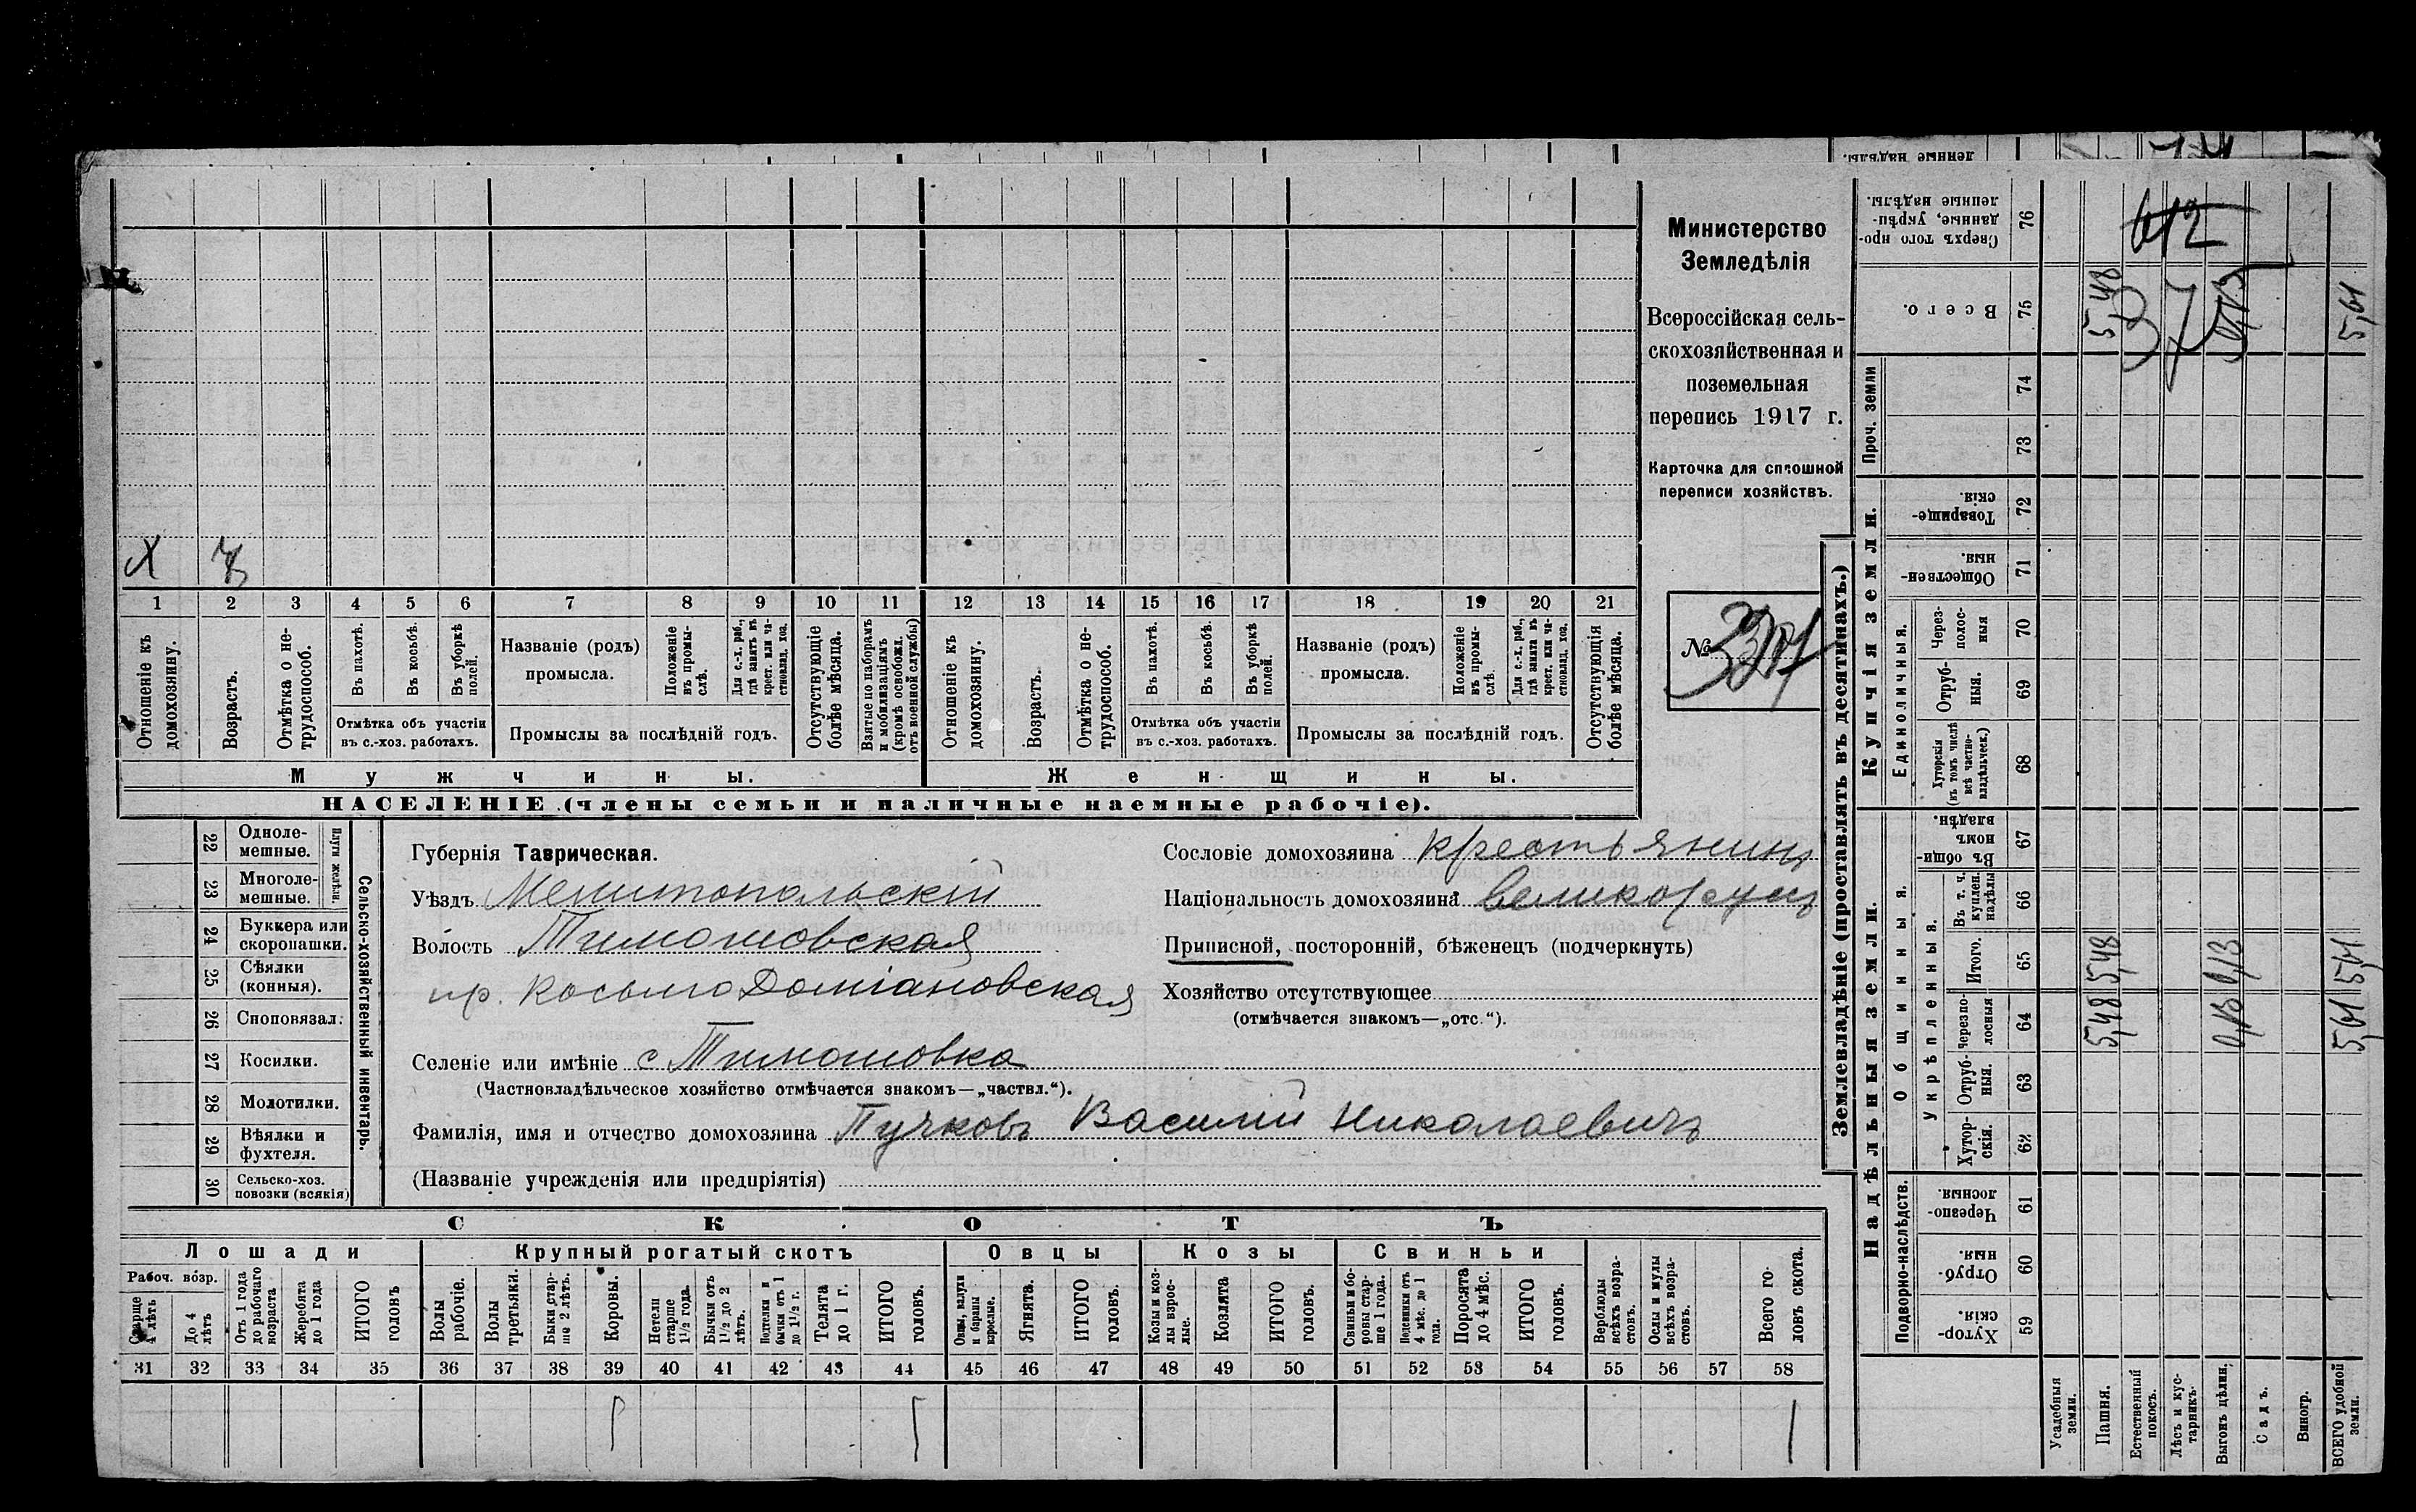 Министерство
Земледѣлія
Всероссійская сель-
скохозяйственная и
поземельная
перепись 1917 г.
Карточка для сплошной
переписи хозяйствъ.
№
х
1 2 3 4 5 6 7 8 9 10 11 12 13 14 15 16 17 18 19 20 21
Отношеніе къ домохозяину.
Возрастъ.
Отмѣтка о не-трудоспособ.
Въ пахотѣ.
Въ косьбѣ.
Въ уборкѣ полей.
Отмѣтка объ участіи
въ с.-хоз. работахъ.
Названіе (родъ)
промысла.
Положеніе въ промы-слѣ.
Для с.-х. раб., гдѣ занятъ въ крест. или ча-стновлад. хоз.
Промыслы за послѣдній годъ.
Отсутствующіе болѣе мѣсяца.
Взятые по наборамъ и мобилизаціямъ (кромѣ освобожд. отъ военной службы)
Отношеніе къ домохозяину.
Возрастъ.
Отмѣтка о не-трудоспособ.
Въ пахотѣ.
Въ косьбѣ.
Въ уборкѣ полей.
Отмѣтка объ участіи
въ с.-хоз. работахъ.
Названіе (родъ)
промысла.
Положеніе въ промы-слѣ.
Для с.-х. раб., гдѣ занята въ крест. или ча-стновлад. хоз.
Промыслы за послѣдній годъ.
Отсутствующія болѣе мѣсяца.
Мужчины.
Женщины.
НАСЕЛЕНІЕ (члены семьи и наличные наемные рабочіе).
22 Одноле-мешные.
23 Многоле-мешные.
Плуги желѣзн.
24 Буккера или скоропашки.
25 Сѣялки (конныя).
26 Сноповязал.
27 Косилки.
28 Молотилки.
29 Вѣялки и фухтеля.
30 Сельско-хоз. повозки (всякія)
Сельско-хозяйственный инвентарь.
Губернія Таврическая.
Уѣздъ Мелитопольскій
Волость Тимошовская
пр. Косьмо Доміановская
Селеніе или имѣніе с Тимошовка
(Частновладѣльческое хозяйство отмѣчается знакомъ—„частвл.“).
Фамилія, имя и отчество домохозяина Пучковъ Василій Николаевичъ
(Названіе учрежденія или предпріятія)
Сословіе домохозяина крестьянинъ
Національность домохозяина великорусъ
Приписной, посторонній, бѣженецъ (подчеркнуть)
Хозяйство отсутствующее
(отмѣчается знакомъ—„отс.“).
СКОТЪ
Лошади
Крупный рогатый скотъ
Овцы
Козы
Свиньи
Рабоч. возр.
Старше 4 лѣтъ
До 4 лѣтъ
Отъ 1 года до рабочаго возраста
Жеребята до 1 года
ИТОГО головъ
Волы рабочіе.
Волы третьяки.
Быки стар-ше 2 лѣтъ.
Коровы.
Нетели старше 1½ года.
Бычки отъ 1½ до 2 лѣтъ.
Подтелки и бычки отъ 1 до 1½ г.
Телята до 1 г.
ИТОГО головъ.
Овцы, валухи и бараны взрослые.
Ягнята.
ИТОГО головъ.
Козы и коз-лы взрос-лые.
Козлята
ИТОГО головъ.
Свиньи и бо-ровы стар-ше 1 года.
Подсвинки отъ 4 мѣс. до 1 года.
Поросята до 4 мѣс.
ИТОГО головъ.
Верблюды всѣхъ возра-стовъ.
Ослы и мулы всѣхъ возра-стовъ.
Всего го-ловъ скота.
31 32 33 34 35 36 37 38 39 40 41 42 43 44 45 46 47 48 49 50 51 52 53 54 55 56 57 58
1 1 1
Землевладѣніе (проставлять въ десятинахъ.)
Надѣльныя земли.
Купчія земли.
Проч. земли
Подворно-наслѣдств.
Общинныя.
Укрѣпленныя.
Единоличныя.
Сверхъ того про-данные, укрѣп-ленные надѣлы. 76
Всего. 75 5,48 5,61
74
73
Товарище-скія. 72
Обществен-ныя. 71
Через-полос-ныя 70
Отруб-ныя. 69
Хуторскія (въ томъ числѣ всѣ частно-владѣльческ.) 68
Въ общин-номъ владѣн. 67
Въ т. ч. куплен. надѣлы 66
Итого. 65 5,48 0,13 5,61
Черезпо-лосныя 64 5,48 0,13 5,61
Отруб-ныя. 63
Хутор-скія. 62
Черезпо-лосныя. 61
Отруб-ныя. 60
Хутор-скія 59
Усадебныя земли.
Пашня.
Естественный покосъ.
Лѣсъ и кус-тарникъ.
Выгонъ цѣлин.
Садъ.
Виногр.
ВСЕГО удобной земли.
612
ленные надѣлы.